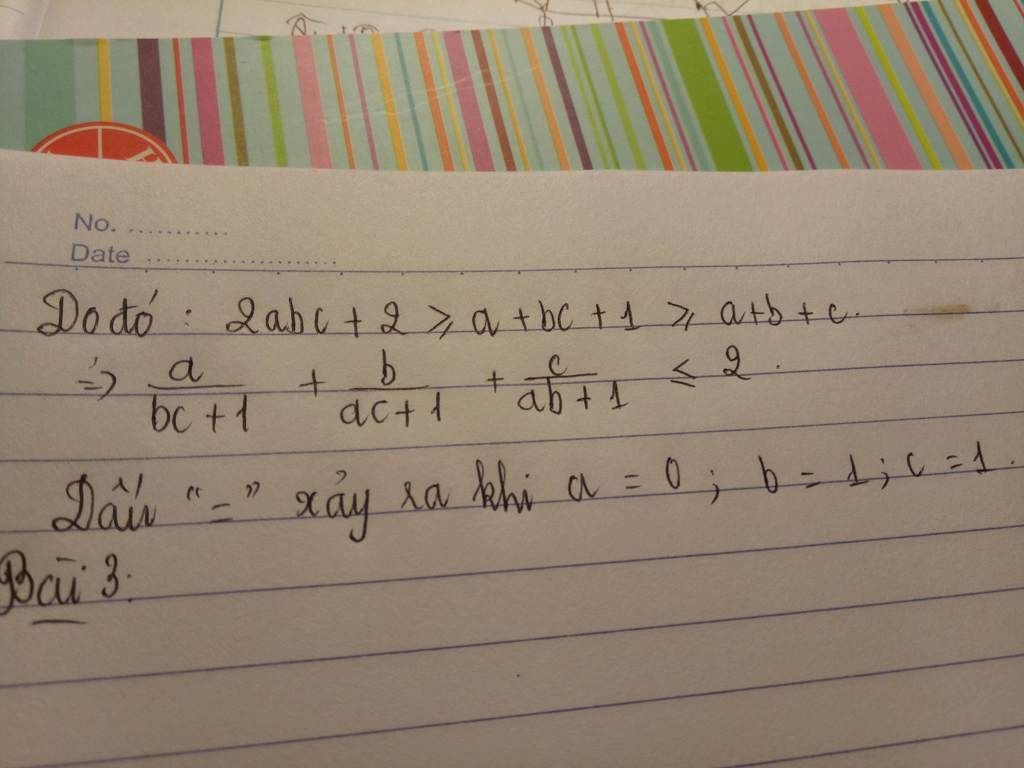 No. ...........
Date ......................
Do đó : 2abc + 2 ⩾ a + bc + 1 ⩾ a+b+c.
=> a/(bc + 1) + b/(ac + 1) + c/(ab + 1) ≤ 2.
Dấu "=" xảy ra khi a = 0 ; b = 1 ; c = 1.
Bài 3: